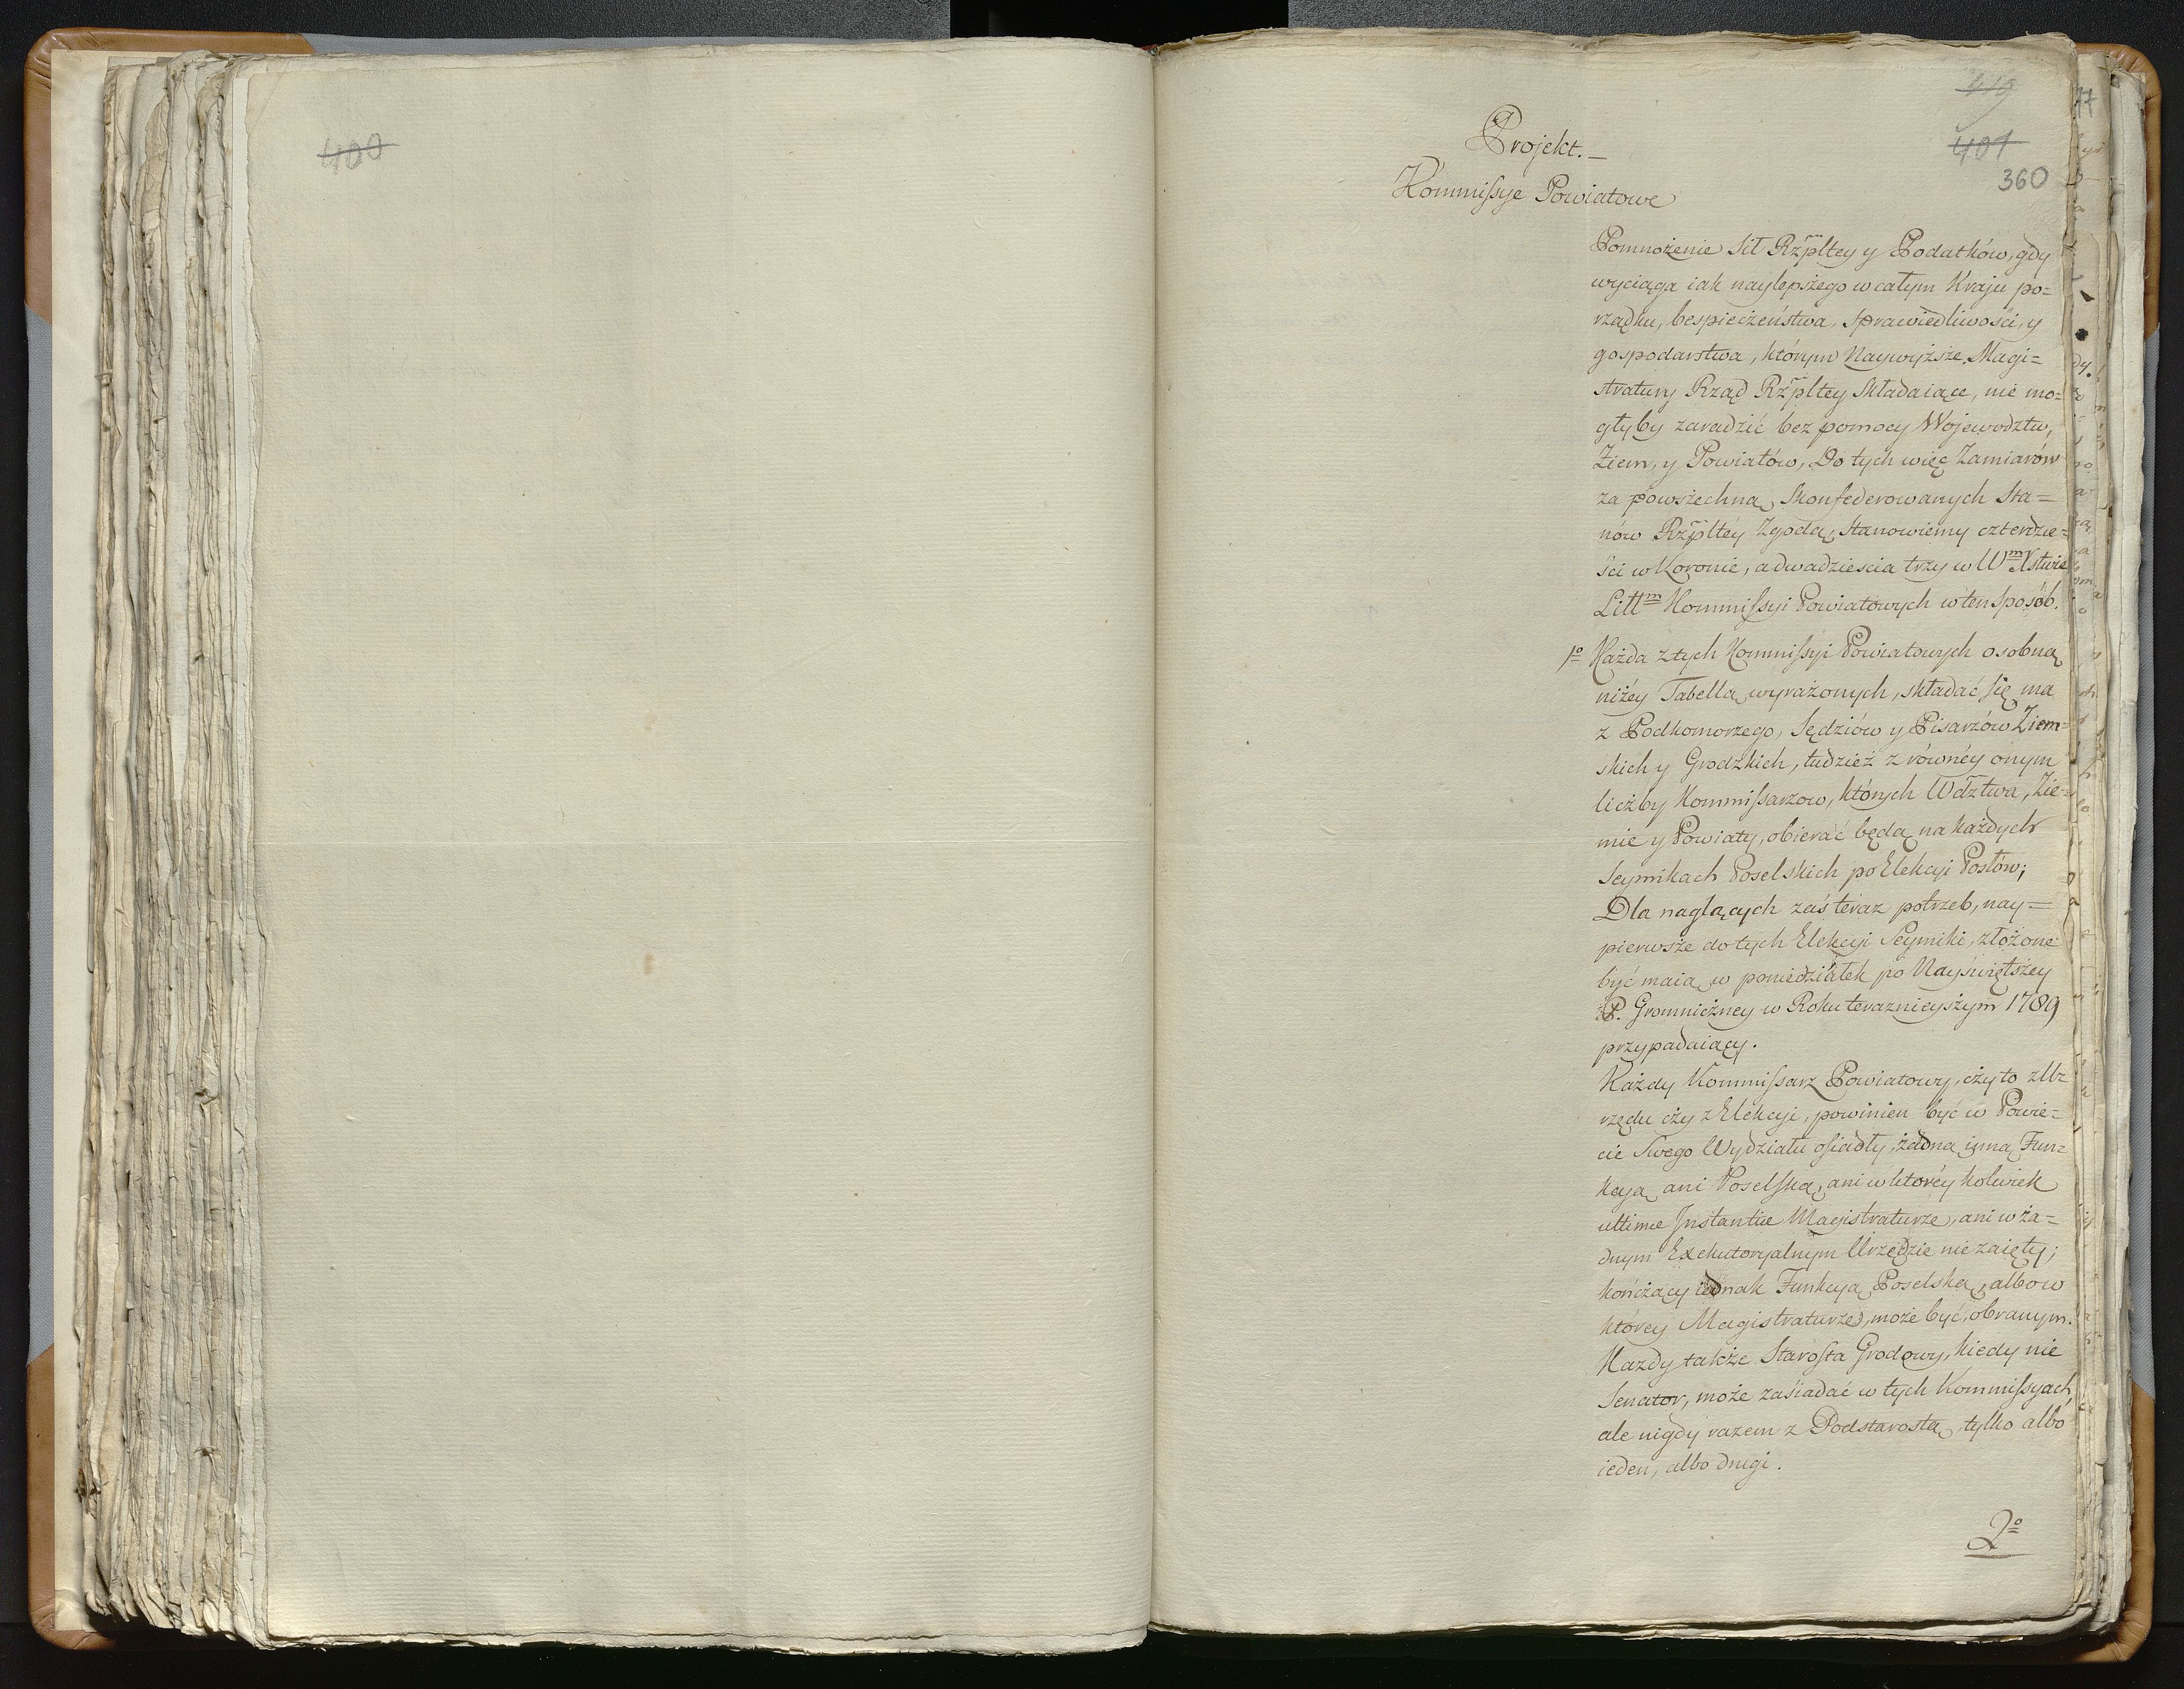 400
419
401
360
Projekt.
Kommissye Powiatowe
Pomnożenie Sił Rzpltey y Podatków, gdy
wyciąga iak naylepszego w całym Kraju po=
rządku, bespieczeństwa, Sprawiedliwości, y
gospodarstwa, którym Naywyższe Magi=
stratury Rząd Rzpltey Składaiące, nie mo=
głyby zaradzić bez pomocy Wojewodztw,
Ziem, y Powiatów, Do tych więc Zamiarów
za powszechną Skonfederowanych Sta=
nów Rzpltéy Zgodą, Stanowiemy czterdzie=
ści w Koronie, a dwadzieścia trzy w Wm Xstwie
Littm Kommissyi Powiatowych w ten Sposób.
1o Każda z tych Kommissyi Powiatowych osobną
niżéy Tabellą wyrażonych, składać się ma
z Podkomorzego, Sędziów y Pisarzów Ziem=
skich y Grodzkich, tudzież z równéy onym
liczby Kommissarzow, których Wdztwa, Zie=
mie y Powiaty, obierać będą na każdych
Seymikach Poselskich po Elekcyi Posłów;
Dla naglących zaś teraz potrzeb, nay=
pierwsze do tych Elekcyi Seymiki, złożone
być maią w poniedziałek po Nayświętszey
P. Gromniczney w Roku teraznieyszym 1789
przypadaiący.
Każdy Kommissarz Powiatowy, czyto z U=
rzędu czy z Elekcyi, powinien być w Powie=
cie Swego Wydziału osiadły, żadną inną Fun=
kcyą ani Poselską, ani w którey kolwiek
ultimæ Instantiæ Magistraturze, ani w ża=
dnym Exekutoryalnym Urzędzie nie zaięty;
kończący iednak Funkcyą Poselską, albo w
którey Magistraturze, może być obranym.
Każdy także Starosta Grodowy, kiedy nie
Senator, może zasiadać w tych Kommissyach,
ale nigdy razem z Podstarostą, tylko albo
ieden, albo drugi.
2o